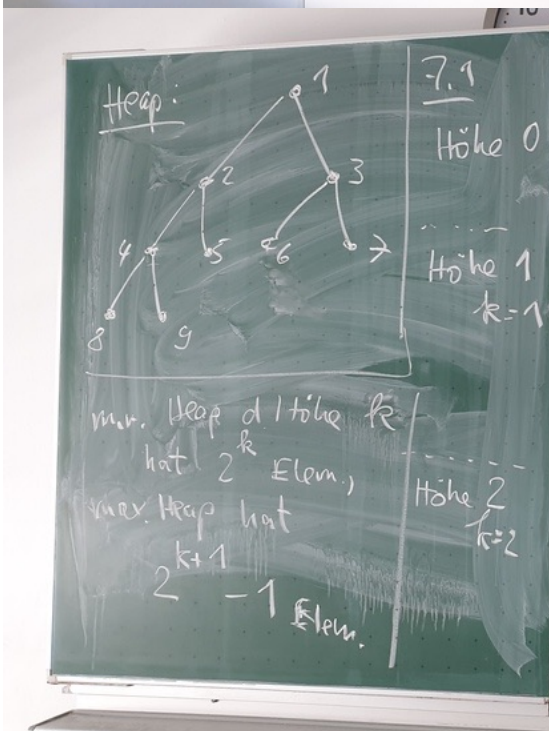 10
Heap:
1
2
3
4
5
6
7
8
9
7.1
Höhe 0
Höhe 1
k=1
Höhe 2
k=2
min. Heap d. Höhe k
hat 2^k Elem.,
max. Heap hat
2^{k+1} - 1 Elem.